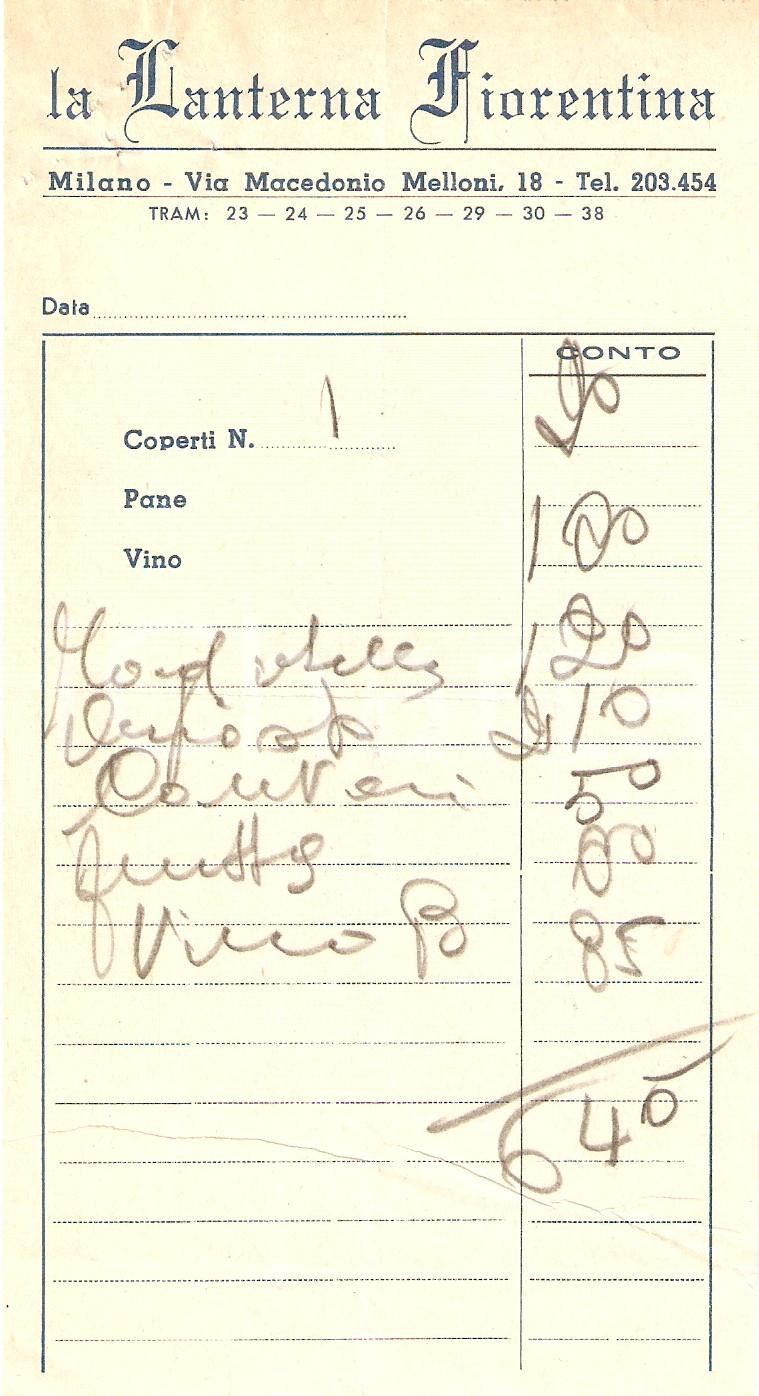 la Lanterna Fiorentina
Milano - Via Macedonio Melloni, 18 - Tel. 203.454
TRAM: 23 — 24 — 25 — 26 — 29 — 30 — 38
Data
CONTO
Coperti N. 1
Pane
Vino
120
210
50
frutta
Vino B 85
640